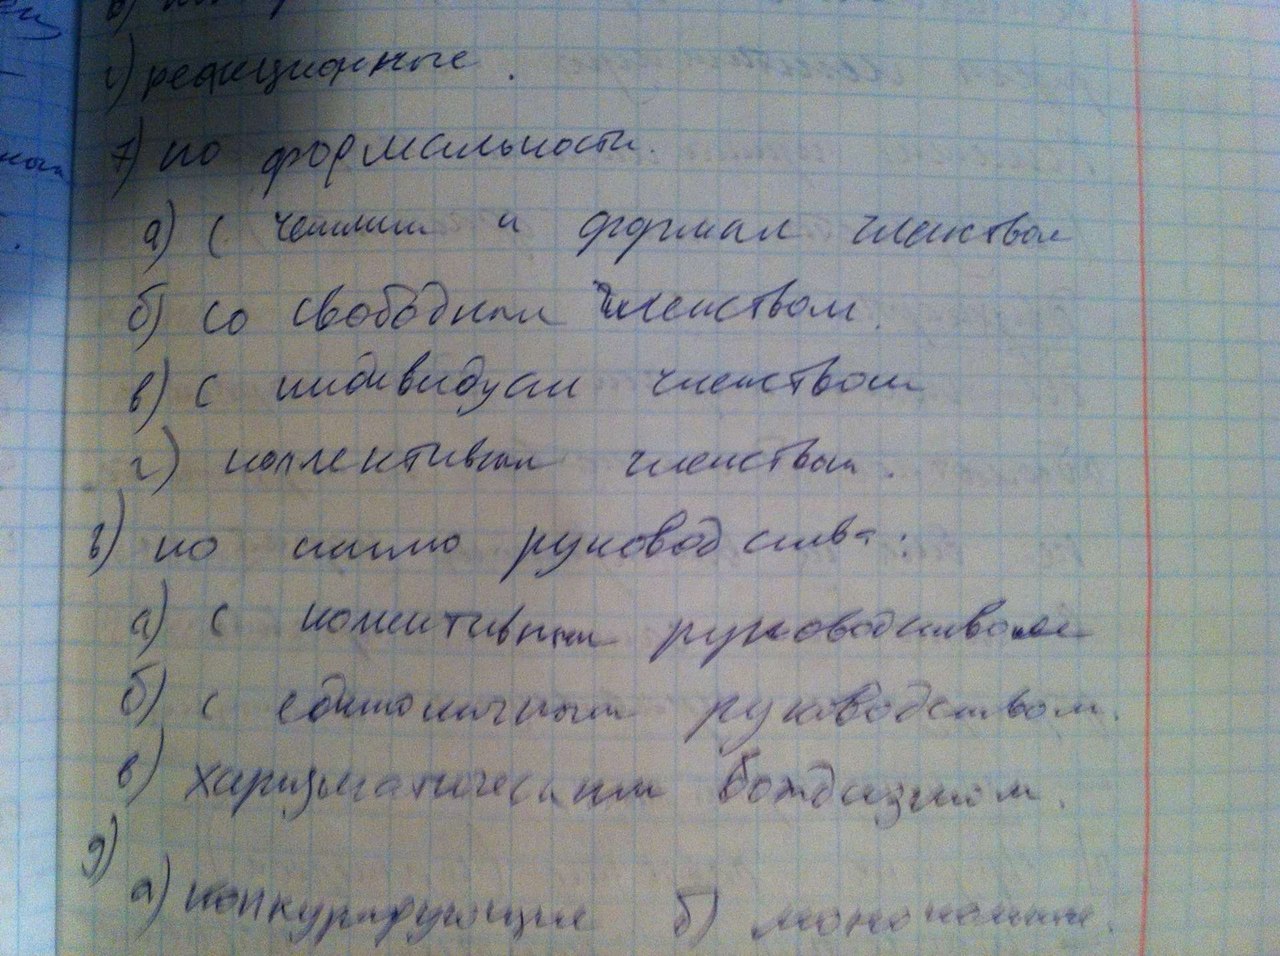 г) реакционные.
7) по формальности.
а) с четким и формал членством
б) со свободным членством.
в) с индивидуал членством
г) коллективным членством.
8) по стилю руководства:
а) с коллективным руководством
б) с единоличным руководством.
в) харизматическим вождизмом.
9)
а) конкурирующие б)